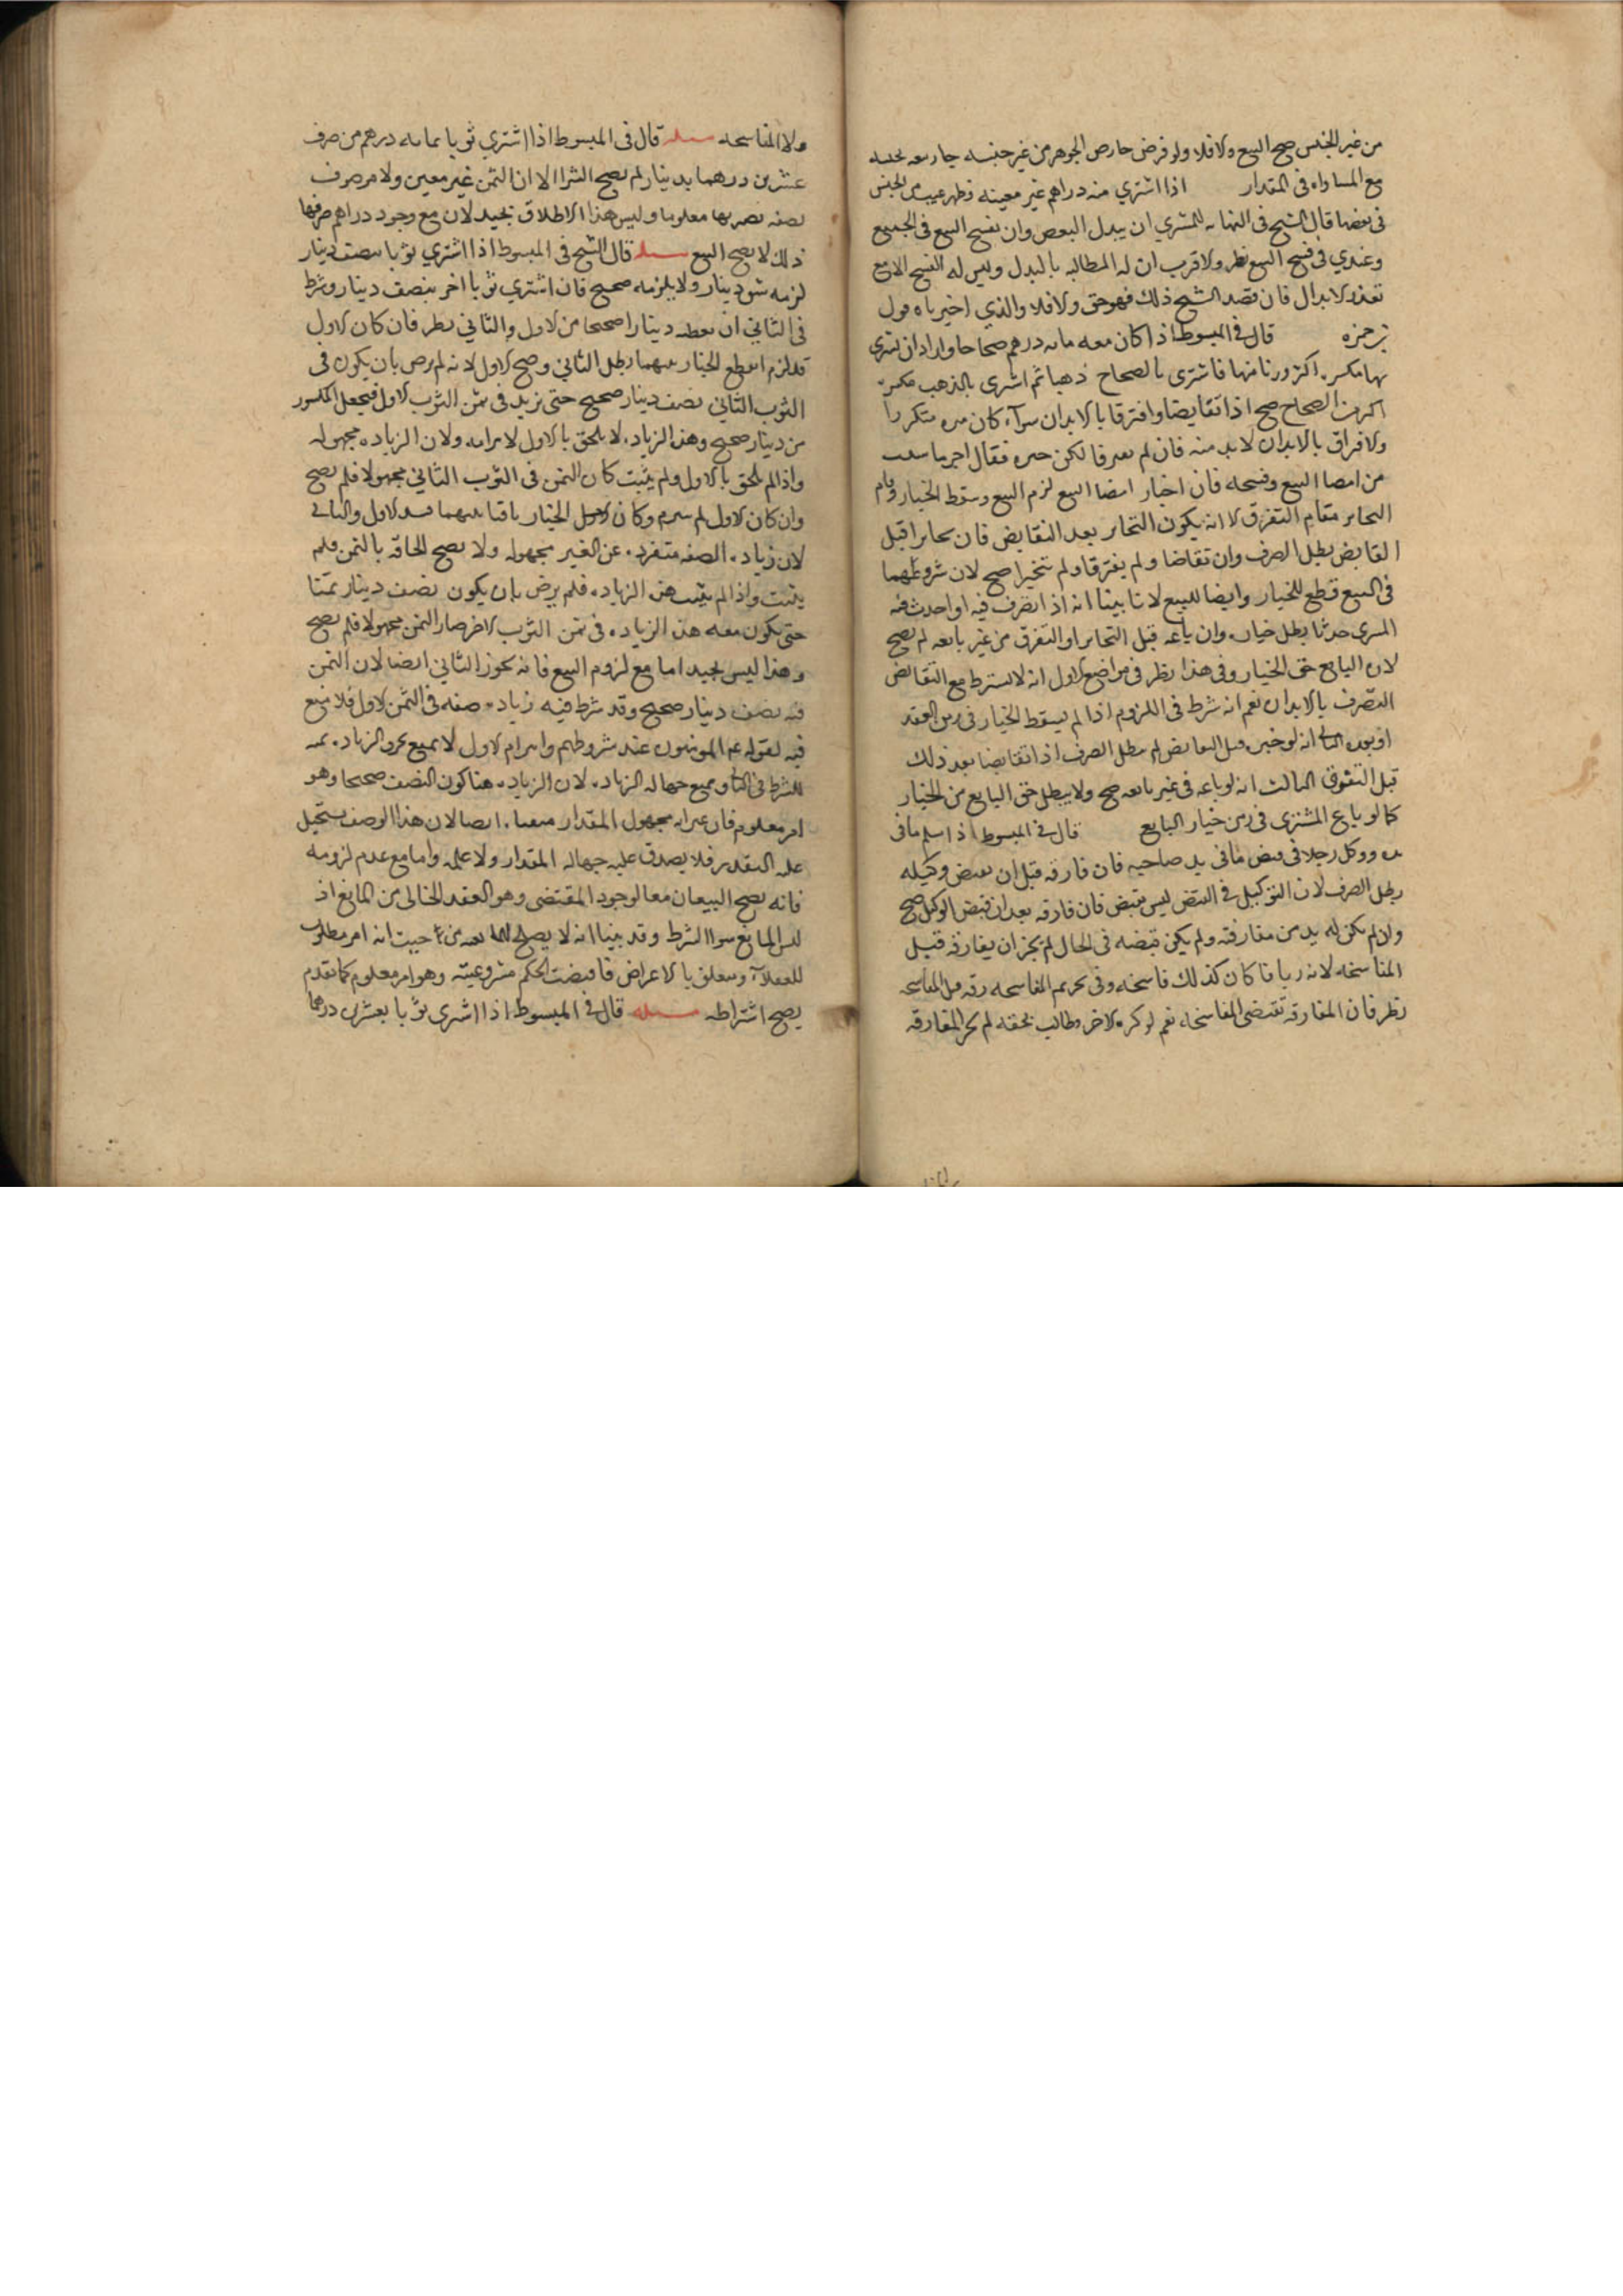 من غير الجنس صح البيع والا فلا ولو فرض خارص الجوهر من غير جنسه جاز بيعه بجنسه
مع المساواة في المقدار اذا اشتري منه دراهم غير معينه وظهر عيب من الجنس
في بعضها قال الشيخ في النهايه للمشتري ان يبدل البعض وان يفسخ البيع في الجميع
وعندي في فسخ البيع نظر والاقرب ان له المطالبه بالبدل وليس له الفسخ الا مع
تعذر الابدال فان قصد الشيخ ذلك فهو حق والا فلا والذي اخترناه قول
بن حمزه قال في المبسوط اذا كان معه مايه درهم صحاحا واراد ان يشتري
بها مكسره اكثر وزنا منها فاشترى بالصحاح ذهبا ثم اشرى بالذهب مكسره
اكثر من الصحاح صح اذا تقابضا وافترقا بالابدان سواء كان مره متكررا
والافراق بالابدان لا بد منه فان لم يفترقا لكن خيره فقال اختر ما شيت
من امضا البيع وفسخه فان اختار امضا البيع لزم البيع وسقط الخيار وقام
التخاير مقام التفرق الا انه يكون التخاير بعد التقابض فان تخايرا قبل
التقابض بطل الصرف وان تقاضا ولم يفترقا ولم يتخيرا صح لان شروعهما
في البيع قطع للخيار وايضا للبيع لانا بينا انه اذا تصرف فيه او احدث فيه
المشري حدثا بطل خياره وان باعه قبل التخاير او التفرق من غير بايعه لم يصح
لان البايع حق الخيار وفي هذا نظر في مواضع الاول انه لا يشترط مع التقابض
التصرف بالابدان نعم انه شرط في اللزوم اذا لم يسقط الخيار في نفس العقد
او بعده الثاني انه لو خيره قبل التقابض لم يبطل الصرف اذا تقابضا بعد ذلك
قبل التفرق الثالث انه لو باعه في غير بايعه صح ولا يبطل حق البايع من الخيار
كما لو باع المشتري في زمن خيار البايع قال في المبسوط اذا سلم ما في
يده ووكل رجلا في قبض ما في يد صاحبه فان فارقه قبل ان يقبض وكيله
بطل الصرف لان التوكيل في القبض ليس بقبض فان فارقه بعد ان قبض الوكيل صح
وان لم يكن له بد من مفارقته ولم يكن قبضه في الحال لم يجز ان يفارقه قبل
المفاسخه لانه ربا فا كان كذلك فاسخه وفي تحريم المفاسحه رقه قبل المفاسحه
نظر فان المفارقه تقتضى المفاسخه نعم لو كره الاخر وطالب بحقه لم يجز المفارقه
ولا المفاسحه مسله قال في المبسوط اذا اشتري ثوبا بمايه درهم من صرف
عشرين درهما بدينار لم يصح الشرا الا ان الثمن غير معين ولا مرصوف
بصفه يصير بها معلوما وليس هذا الاطلاق بجيد لان مع وجود دراهم صرفها
ذلك لا يصح البيع مسله قال الشيخ في المبسوط اذا اشتري ثوبا بنصف دينار
لزمه شق دينار ولا يلزمه صحيح فان اشتري ثوبا اخر بنصف دينار وشرط
في الثاني ان يعطيه دينارا صحيحا من الاول والثاني نظر فان كان الاول
قد لزم انقطع الخيار بينهما بطل الثاني وصح الاول لانه لم يرض بان يكون في
الثوب الثاني نصف دينار صحيح حتى يزيد في ثمن الثوب الاول فيجعل المكسور
من دينار صحيح وهذه الزياده لا يلحق بالاول لابرامه ولان الزياده مجهوله
واذا لم يلحق بالاول ولم يثبت كان الثمن في الثوب الثاني مجهولا فلم يصح
وان كان الاول لم ينبرم وكان الخيار باقيا بينهما فسد الاول والثاني
لان زياده الصفه متفرده عن الغير مجهوله ولا يصح الحاقه بالثمن فلم
يثبت واذا لم يثبت هذه الزياده فلم يرض بان يكون نصف دينار ثمنا
حتى يكون معه هذه الزياده في ثمن الثوب الاخر صار الثمن مجهولا فلم يصح
وهذا ليس بجيد اما مع لزوم البيع فانه يجوز الثاني ايضا لان الثمن
فيه نصف دينار صحيح وقد شرط فيه زياده صفه في الثمن الاول فلا منع
فيه لقوله عم المومنون عند شروطهم وابرام الاول لا يمنع تحرد الزياده ثمه
للشرط في الثاني ويمنع جهاله الزياده لان الزياده هنا كون النصف صحيحا وهو
امر معلوم فان مجهول المقدار ايضا لان هذا الوصف يستحيل
عليه التقدير فلا يصدق عليه جهاله المقدار ولا علمه واما مع عدم لزومه
فانه يصح البيعان معا لوجود المقتضى وهو العقد الخالي من المانع اذ
ليس المانع سوا الشرط وقد بينا انه لا يصلح للمانعيه من حيث انه امر مطلوب
للعقلاء ويتعلق بالاعراض فاقتضت الحكم مشروعيته وهو امر معلوم كما تقدم
يصح اشتراطه مسله قال في المبسوط اذا اشرى ثوبا بعشرين درهما